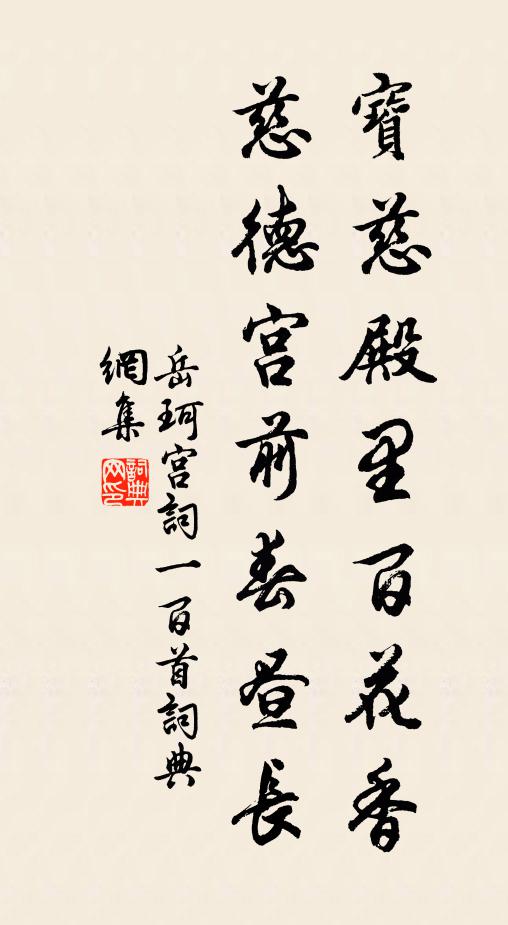 寶慈殿里百花香
慈德宫前春昼長
岳珂宫詞一百首詞典
網集
詞典
网印